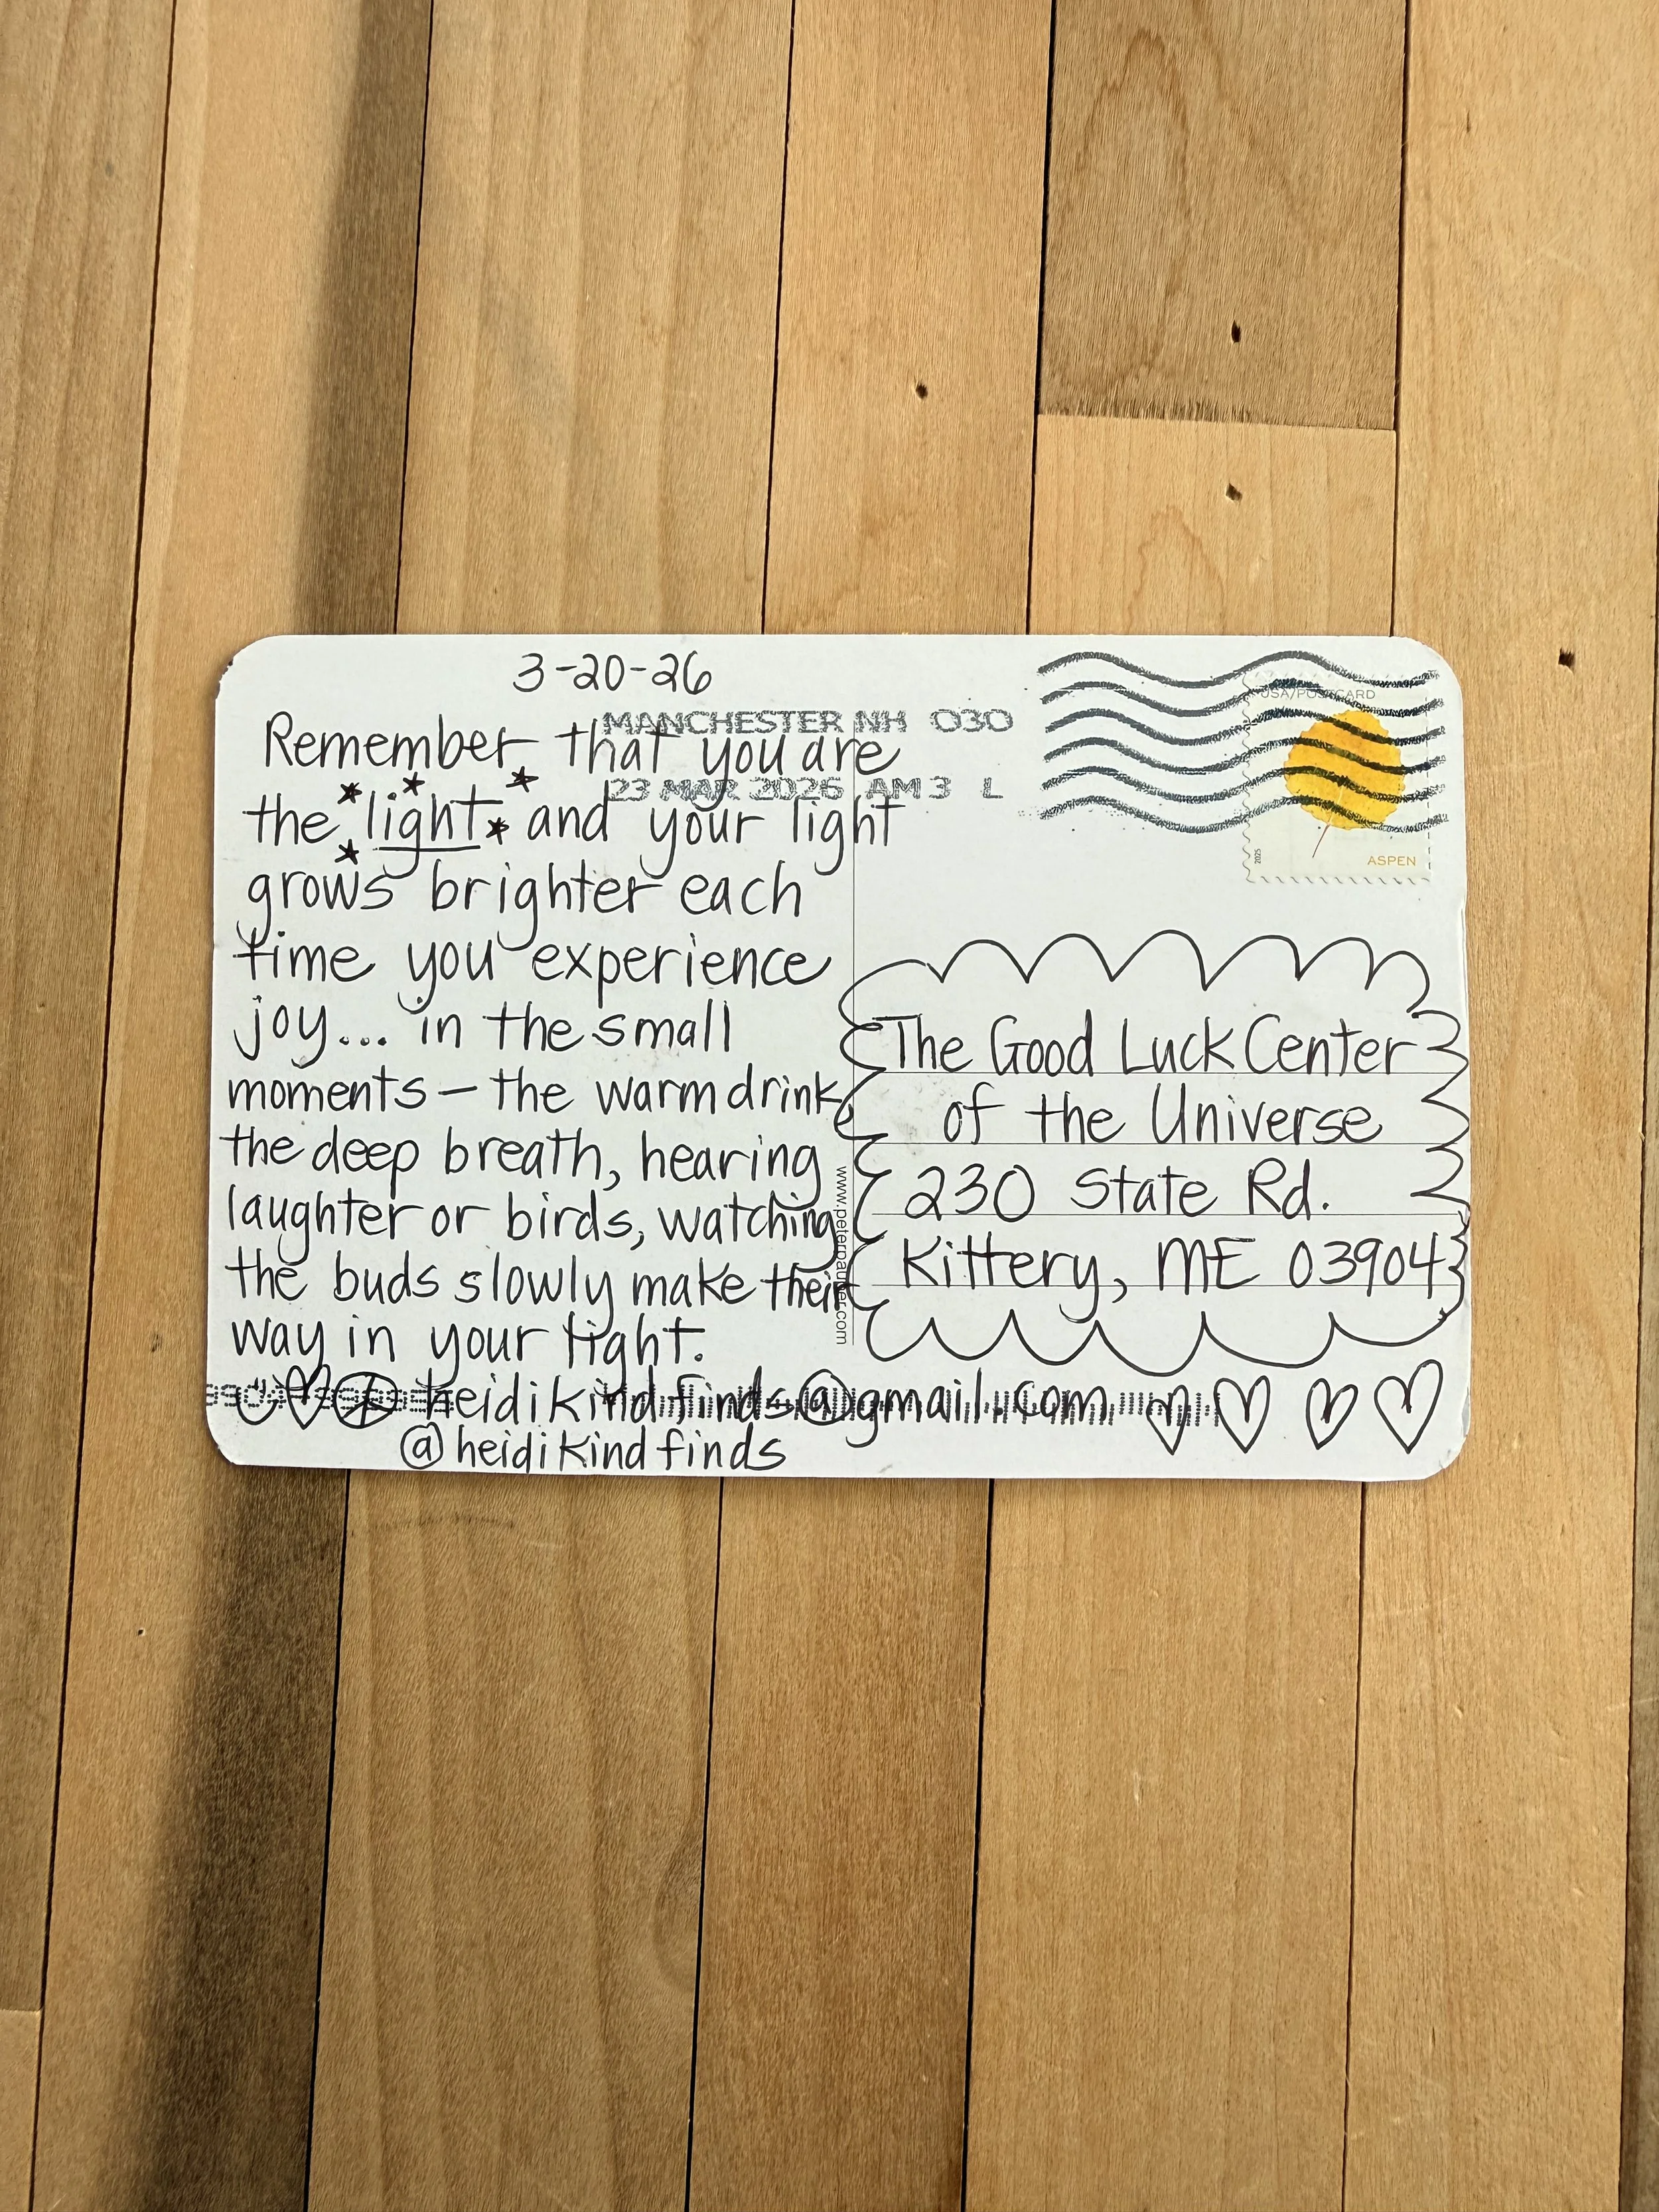 3-20-26
MANCHESTER NH 030
23 MAR 2026 AM 3 L
Remember that you are
the light and your light
grows brighter each
time you experience
joy... in the small
moments — the warm drink,
the deep breath, hearing
laughter or birds, watching
the buds slowly make their
way in your light.
heidikindfinds@gmail.com
@heidikindfinds
USA/POSTCARD
2025
ASPEN
The Good Luck Center
of the Universe
230 State Rd.
Kittery, ME 03904